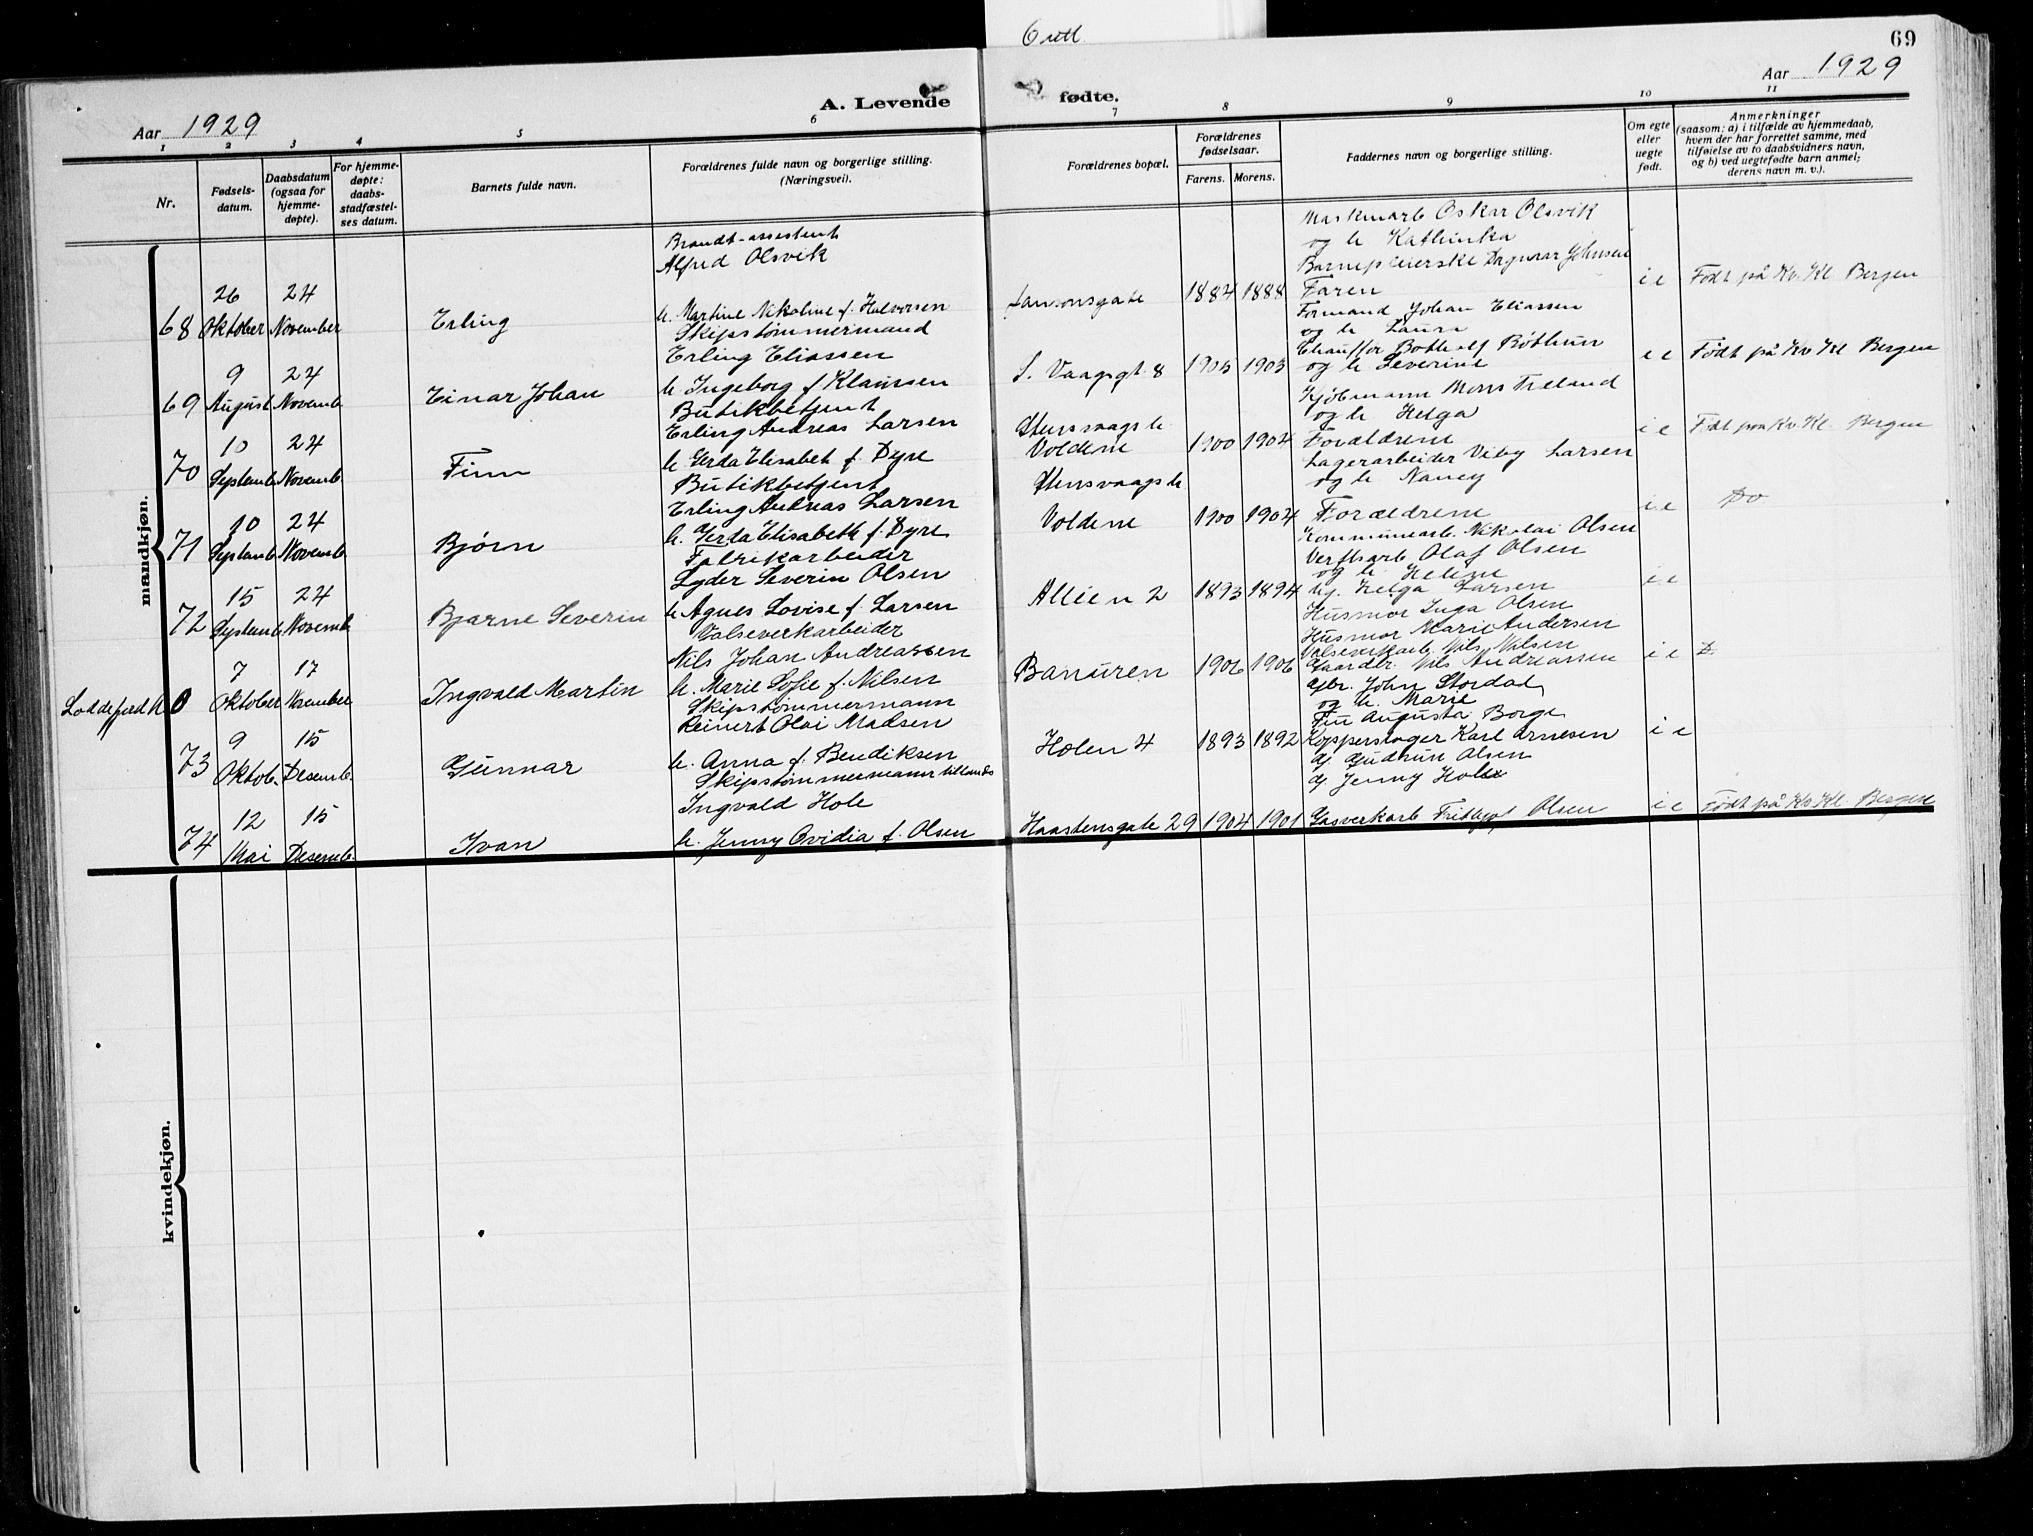 69
Aar 1929
A. Levende fødte.
Aar 1929
1 2 3 4 5 6 7 8 9 10 11
Nr.
Fødsels-
datum.
Daabsdatum
(ogsaa for
hjemme-
døpte).
For hjemme-
døpte:
daabs-
stadfæstel-
ses datum.
Barnets fulde navn.
Forældrenes fulde navn og borgerlige stilling.
(Næringsvei).
Forældrenes bopæl.
Forældrenes
fødselsaar.
Farens. Morens.
Faddernes navn og borgerlige stilling.
Om egte
eller
uegte
født.
Anmerkninger
(saasom: a) i tilfælde av hjemmedaab,
hvem der har forrettet samme, med
tilføielse av to daabsvidners navn,
og b) ved uegtefødte barn anmel-
derens navn m. v.).
mandkjøn.
68
26
Oktober
24
November
Erling
Brandt-assistent
Alfred Olsvik
h. Martine Nikoline f. Halvorsen
1884 1888
Maskinarb Oskar Olsvik
og h Kathinka
Barnepleierske Dagmar Johnsen
Faren
i e
Født på Kv. Kl. Bergen
69
9
August
24
Novemb
Einar Johan
Skipstømmermand
Erling Eliassen
h Ingeborg f Klaussen
S. Vaagsgt 8
1905 1903
Formand Johan Eliassen
og h Laura
Chauffør Botholf Bøthun
og h Severine
i e
Født på Kv Kl Bergen
70
10
Septemb
24
Novemb
Finn
Butikbetjent
Erling Andreas Larsen
h Gerda Elisabet f. Dyre
Voldene
1900 1904
Kjøbmann Mons Træland
og h Helga
Forældrene
i e
Født paa Kv. Kl. Bergen
71
10
Septemb
24
Novemb
Bjørn
Butikbetjent
Erling Andreas Larsen
h. Gerda Elisabeth f. Dyre
Voldene
1900 1904
Lagerarbeider Viby Larsen
og h Nancy
Forældrene
i e
Do
72
15
Septemb
24
Novemb
Bjarne Severin
Fabrikarbeider
Lyder Severin Olsen
h Agnes Lovise f. Larsen
Alléen 2
1893 1894
Kommunearb. Nikolai Olsen
Verftsarb Olaf Olsen
og h. Helene
Ug. Helga Larsen
i e
Loddefjord k 0
7
Oktober
17
November
Ingvald Martin
Valseverkarbeider
Nils Johan Andreassen
h. Marie Sofie f. Nilsen
Banuren
1906 1906
Husmor Inga Olsen
Husmor Marie Andersen
Valseverkarb. Nils Nilsen
Gaardbr. Nils Andreassen
i e
D.
73
9
Oktob.
15
Desemb.
Gunnar
Skipstømmermann
Reinert Olai Madsen
h. Anna f. Bendiksen
Holen 4
1893 1892
Gbr. John Stordal
og h. Marie
Fru Augusta Borge
Kopperslager Karl Arnesen
i e
74
12
Mai
15
Desemb.
Ivan
Skipstømmermann
Ingvald Hole
h. Jenny Ovidia f. Olsen
Haastensgate 29
1904 1901
Gudrun Olsen
Jenny Hole
Gasverkarb Fritkjof Olsen
i e
Født på Kv. Kl. Bergen
kvindekjøn.